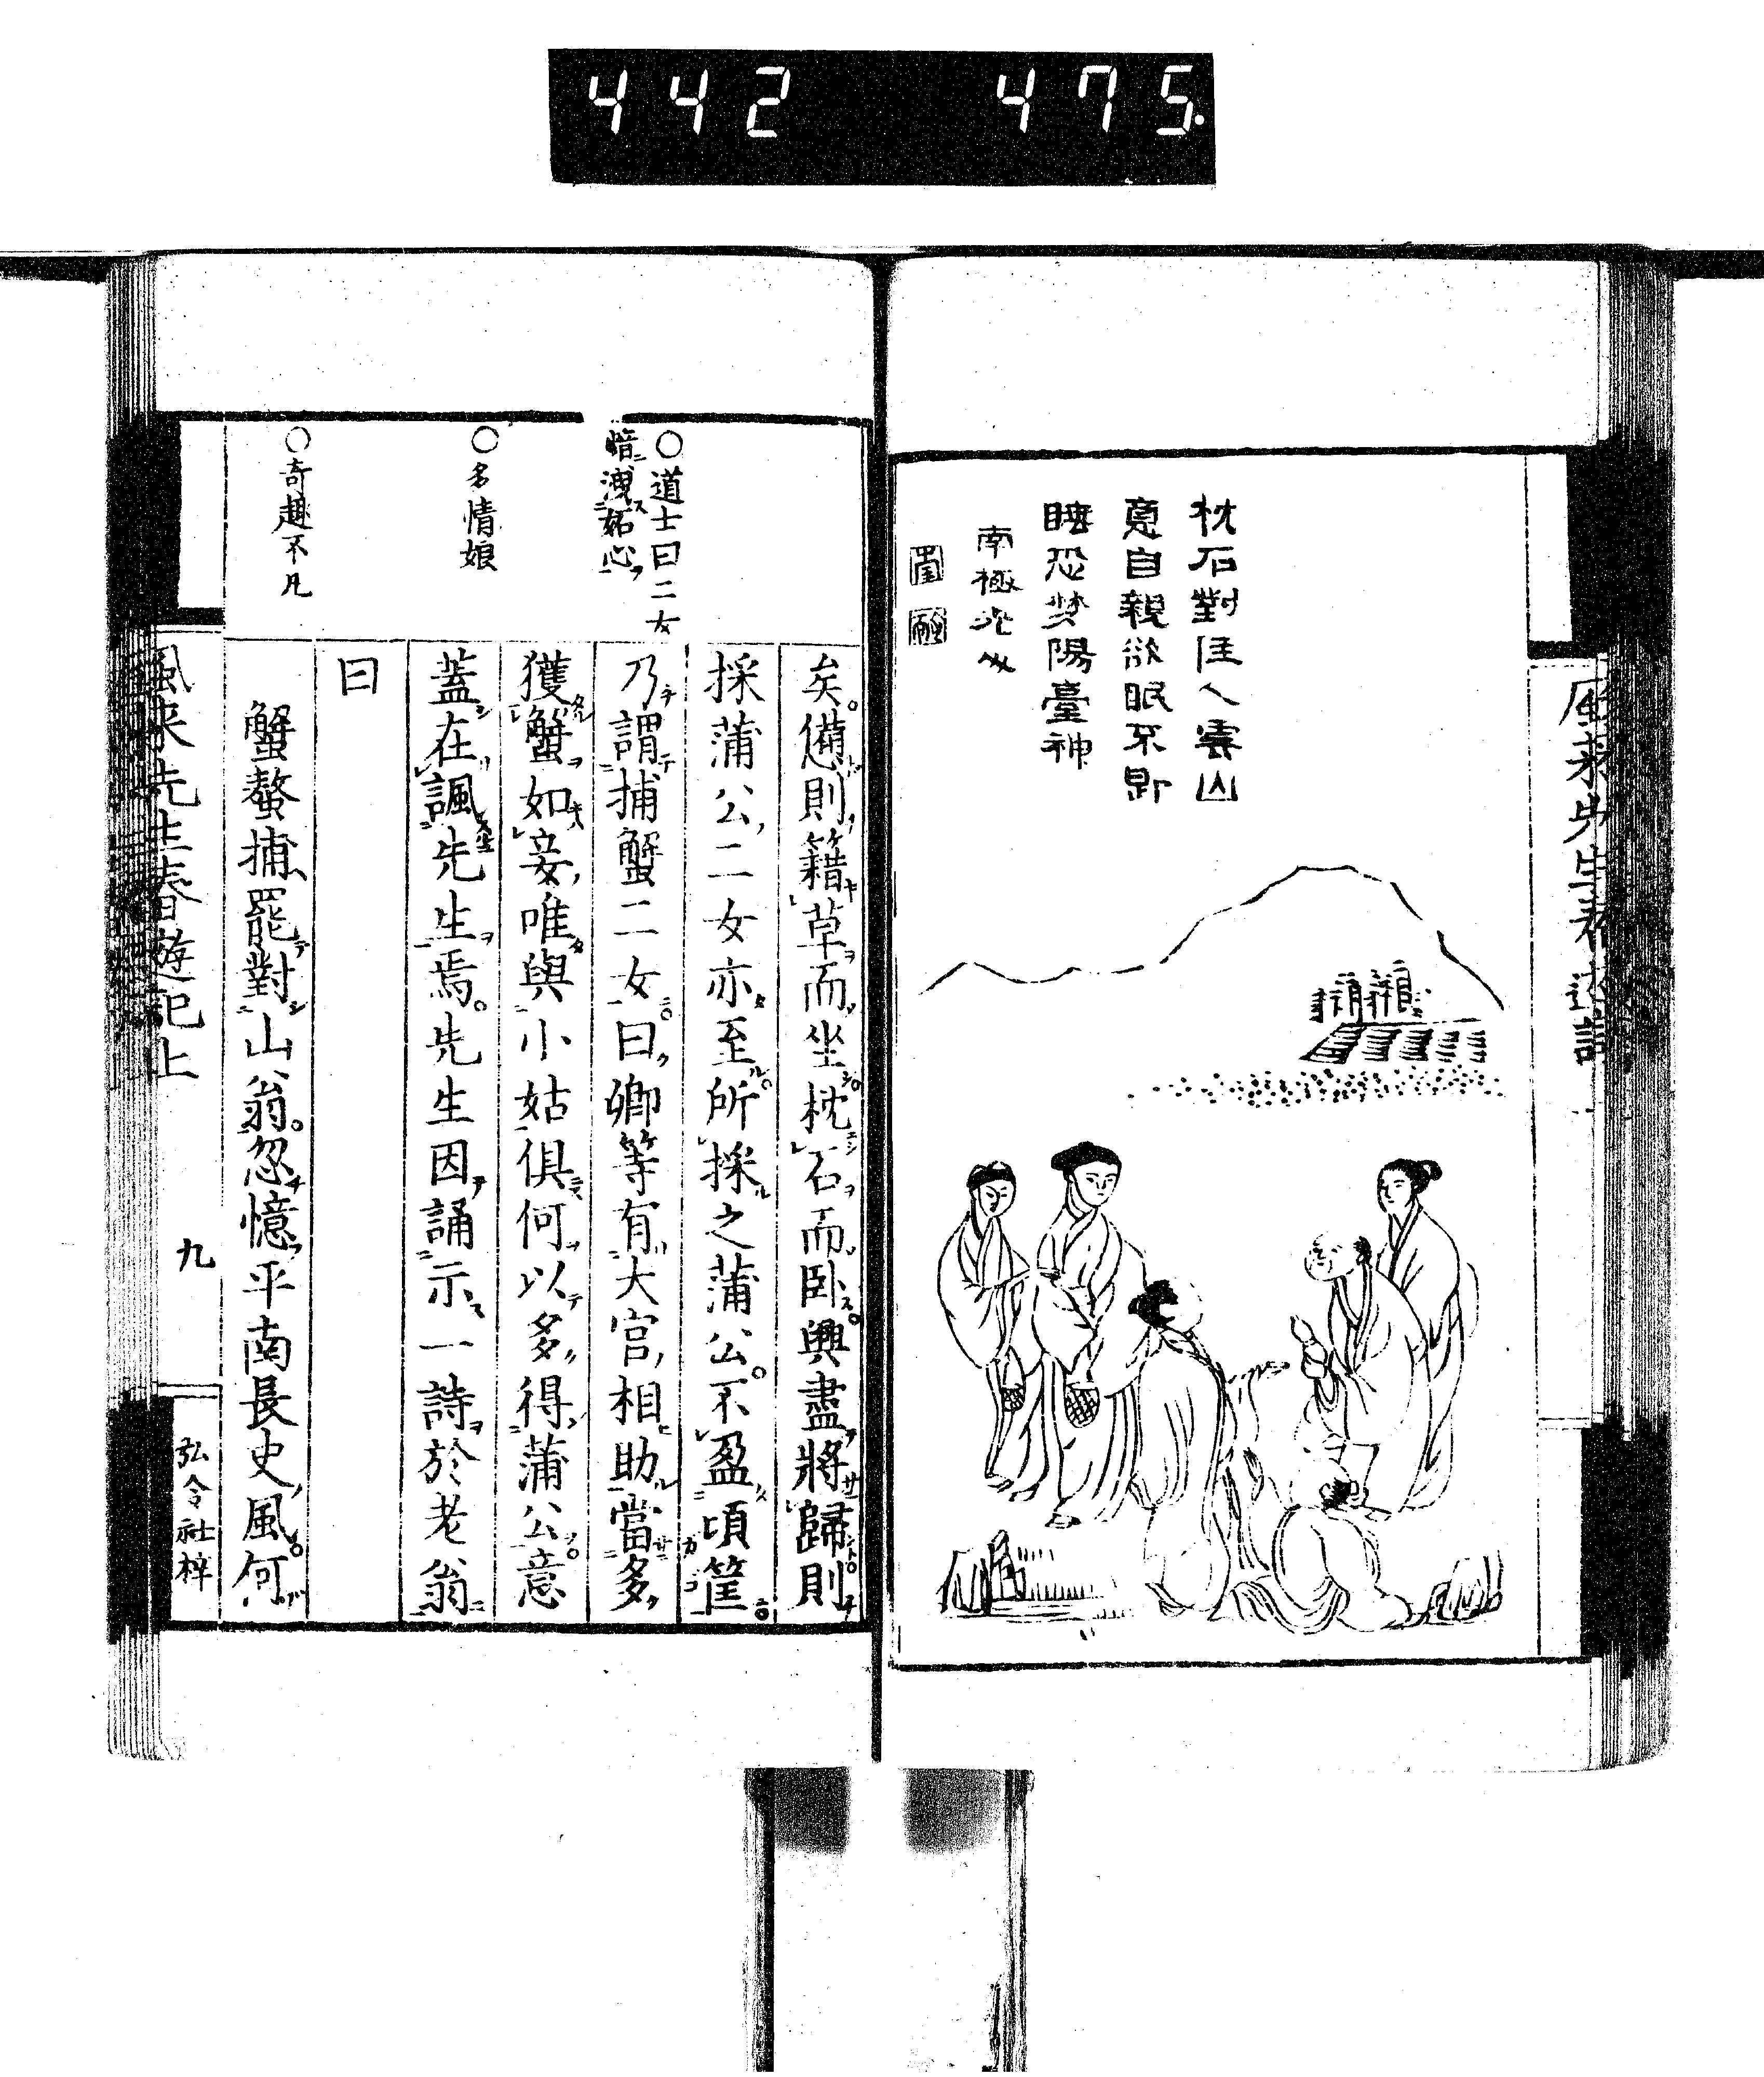 442 475.
枕石對佳人雲山
意自親欲眠不即
睡恐禁陽臺神
南極
○道士曰二女
暗洩妬心
○多情娘
○奇趣不凡
矣。備則籍草而坐枕石而臥。興盡將歸則
採蒲公二女亦至所採之蒲公。不盈頃筐
乃謂捕蟹二女曰卿等有大宮相助當多
獲蟹如妾唯與小姑俱何以多得蒲公。意
蓋在諷先生焉。先生因誦示一詩於老翁
曰
蟹螯捕罷對山翁。忽憶平南長史風。何
風來先生春遊記上
九
弘令社梓